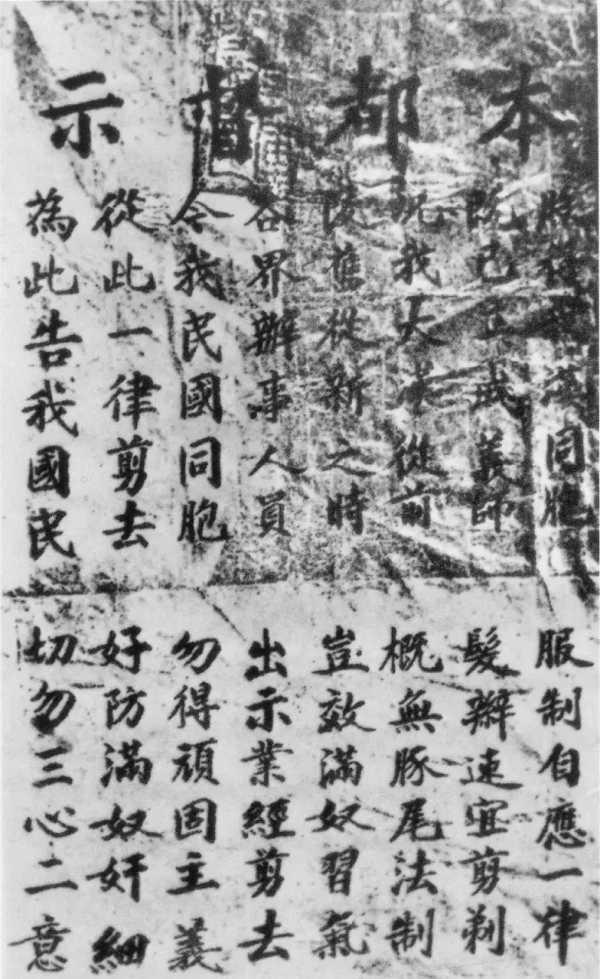 本都督示
滿同胞服制自應一律
既已成義師髮辮速宜剪剃
況我大漢從前概無豚尾法制
舊從新之時豈效滿奴習氣
各界辦事人員出示業經剪去
令我民國同胞勿得頑固主義
從此一律剪去好防滿奴奸細
為此告我國民切勿三心二意